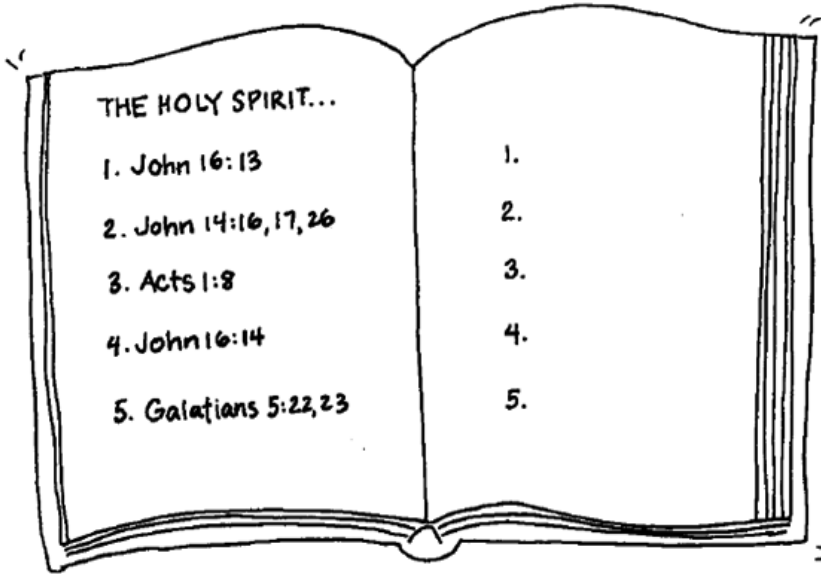 THE HOLY SPIRIT...
1. John 16:13
2. John 14:16,17,26
3. Acts 1:8
4. John 16:14
5. Galatians 5:22,23
1.
2.
3.
4.
5.